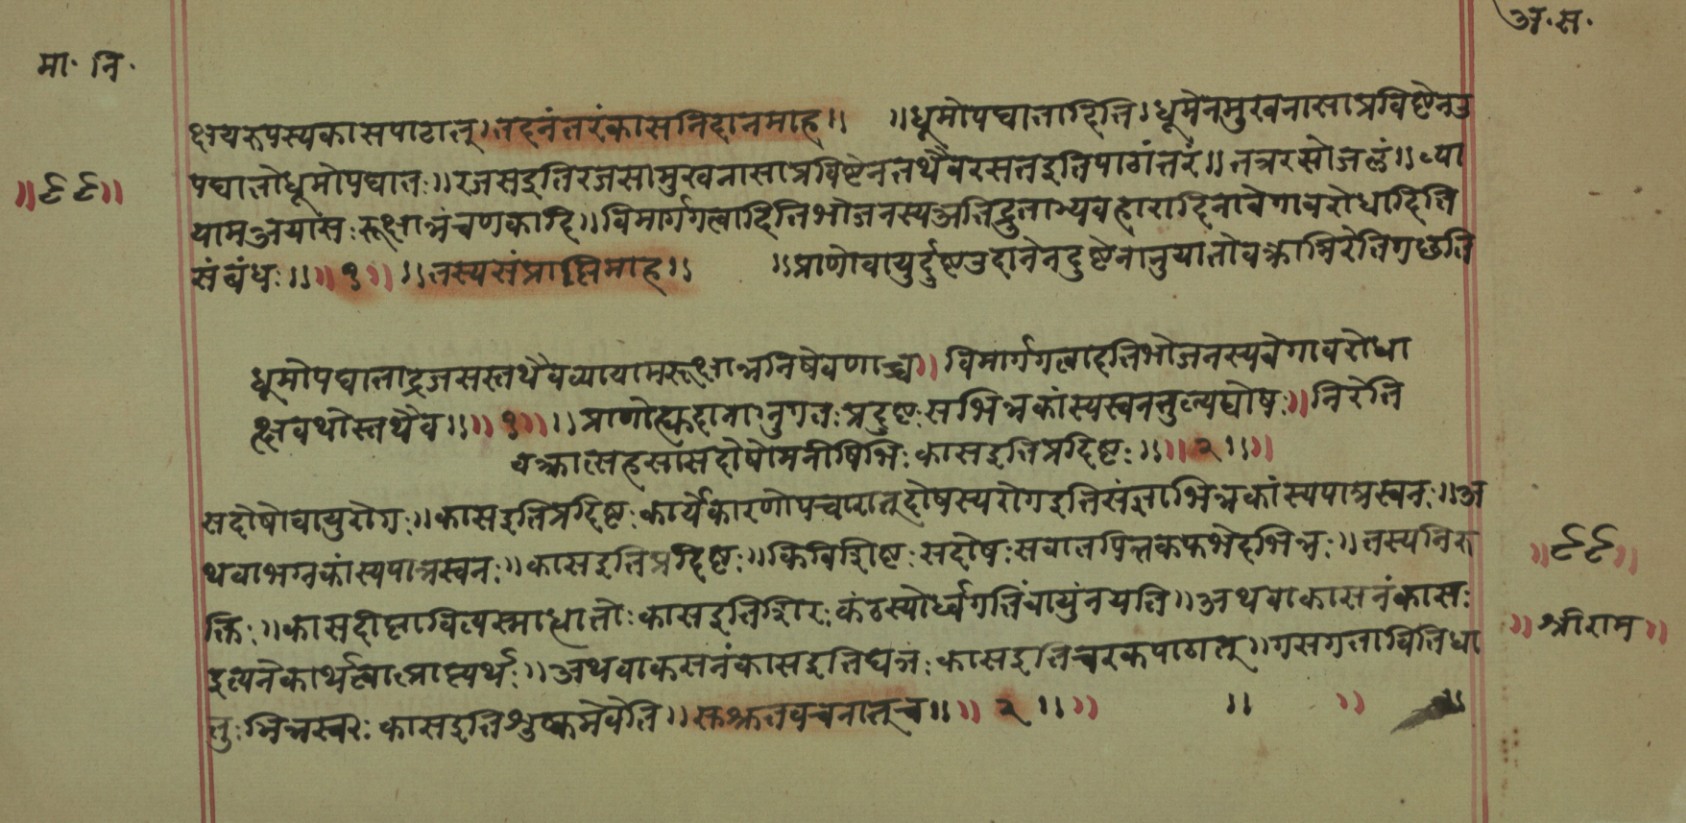 मा. नि.
अ. स.
क्षयरूपस्यकासपाठात् ।तदनंतरंकासनिदानमाह॥ ॥धूमोपघातादिति।धूमेनमुखनासाप्रविष्टेनउ
पघातोधूमोपघातः॥रजसइतिरजसामुखनासाप्रविष्टेनतथैवरसतइतिपाठांतरं॥तत्ररसोजलं॥व्या
यामअयासः रूक्षान्नंचणकादि॥विमार्गगत्वादितिभोजनस्यअतिद्रुताभ्यवहारादिनावेगावरोधादिति
संबंधः॥॥१॥॥तस्यसंप्राप्तिमाह॥ ॥प्राणोवायुर्दुष्टउदानेनदुष्टेनानुयातोवक्त्रान्निरेतिगछति
॥९९॥
धूमोपघाताद्रजसस्तथैवव्यायामरूक्षान्ननिषेवणाच्च॥विमार्गगत्वादतिभोजनस्यवेगावरोधा
त्क्षवथोस्तथैव॥॥१॥॥प्राणोह्युदानानुगतःप्रदुष्टःसभिन्नकांस्यस्वनतुल्यघोषः॥निरेति
वक्त्रात्सहसासदोषोमनीषिभिःकासइतिप्रदिष्टः॥॥२॥॥
सदोषोवायुरोगः॥कासइतिप्रदिष्टःकार्येकारणोपचारात्दोषस्यरोगइतिसंज्ञाभिन्नकांस्यपात्रस्वनः॥अ
थवाभग्नकांस्यपात्रस्वनः॥कासइतिप्रदिष्टः॥किंविशिष्टःसदोषःसवातपित्तकफभेदभिन्नः॥तस्यनिरु
क्तिः॥कासदीप्तावित्यस्माधातोःकासइतिशिरःकंठस्योर्ध्वगतिंवायुंनयति॥अथवाकासनंकासः
इत्यनेकार्थत्वात्प्राप्त्यर्थः॥अथवाकसनंकासइतिघञंःकासइतिचरकपाठात्॥गसगतावितिधा
तुःभिन्नस्वरःकासइतिशुष्कमेवेति॥ वचनात्च॥॥२॥॥ ॥ ॥ ॥
॥९९॥
॥श्रीराम॥